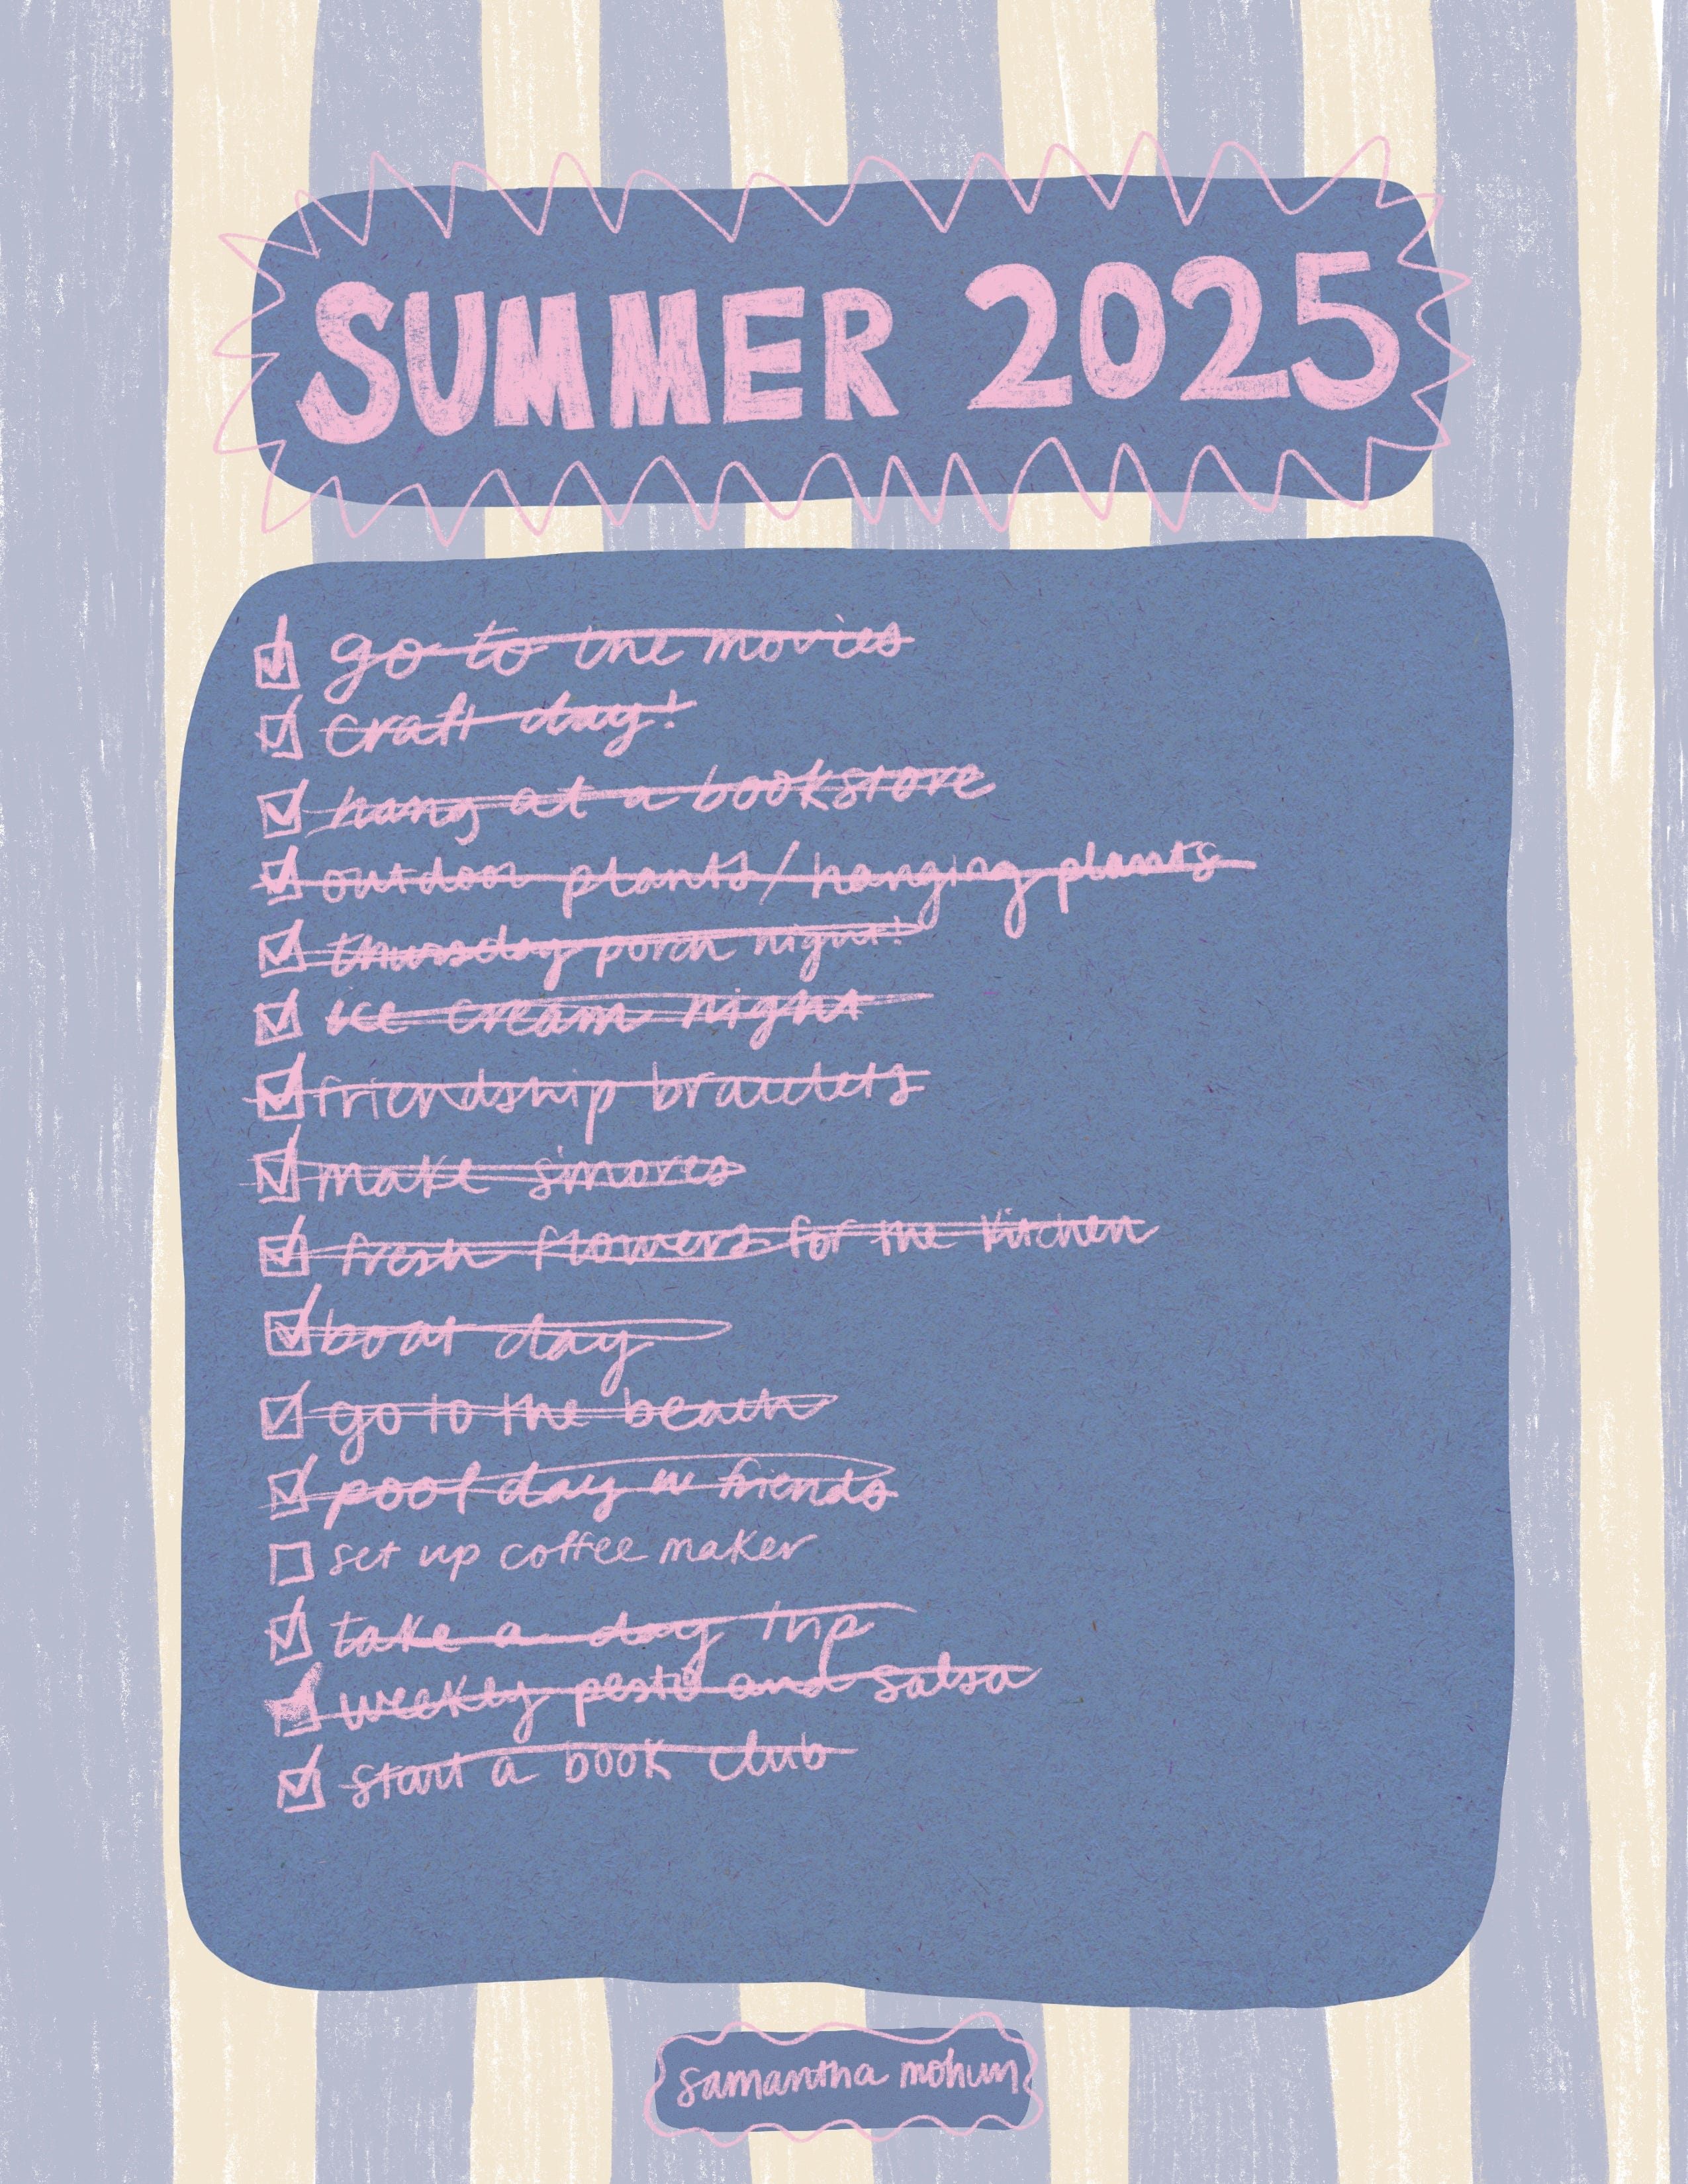 SUMMER 2025
go to the movies
craft day!
hang at a bookstore
outdoor plants/hanging plants
thursday porch night!
ice cream night
friendship bracelets
make s'mores
fresh flowers for the kitchen
boat day
go to the beach
pool day w friends
set up coffee maker
take a day trip
weekly pesto and salsa
start a book club
samantha mohun